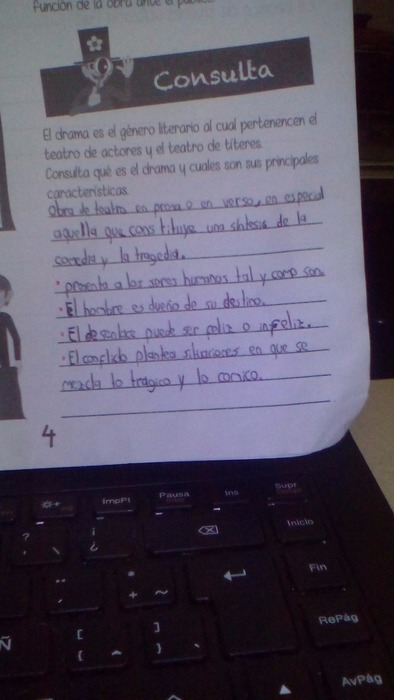 función de la obra ante el
Consulta
El drama es el género literario al cual pertenencen el
teatro de actores y el teatro de títeres.
Consulta qué es el drama y cuales son sus principales
características.
Obra de teatro en prosa o en verso, en especial
aquella que constituye una sintesis de la
comedia y la tragedia.
• presenta a los seres humanos tal y como son.
• El hombre es dueño de su destino.
• El desenlace puede ser feliz o infeliz.
• El conflicto plantea situaciones en que se
mezcla lo tragico y lo comico.
4
ImpPt
Pausa
Ins
Supr
? ' \
¡ ¿
Inicio
Fin
* + ~
RePág
Ñ
[ { ^
] }
AvPág